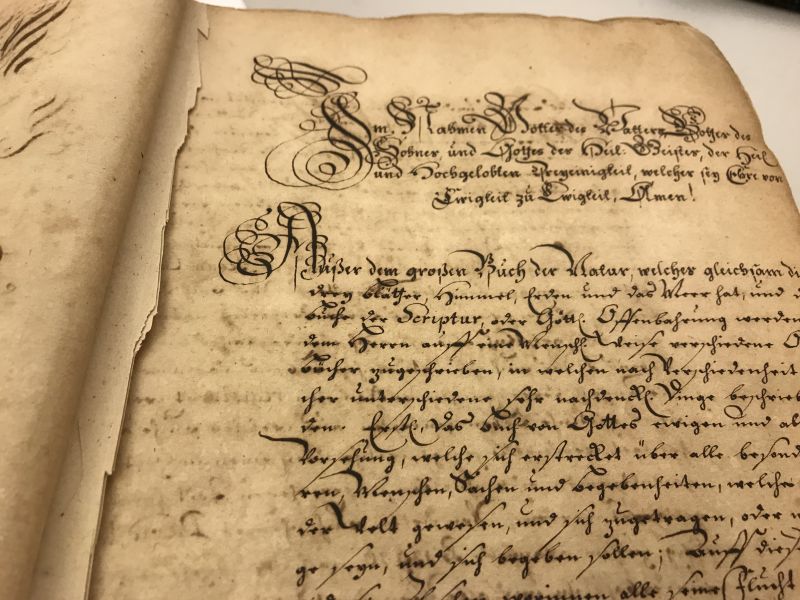 Im Nahmen Gottes des Vatters, Gottes des
Sohnes, und Gottes der Heil: Geistes, der Heil
und Hochgelobten Dreyeinigkeit, welcher sey Ehre von
Ewigkeit zu Ewigkeit, Amen!
Außer dem großen Buch der Natur, welches gleichsam
drey blätter, Himmel, Erden und das Meer hat, und
buche der Scriptur, oder Göttl. Offenbahrung werden
dem Herrn auff eine Menschl. Weise verschiedene
bücher zugeschrieben, in welchen nach Verschiedenheit
cher unterschiedene sehr nachdenckl. Dinge beschrie
den. Erstl. das buch von Gottes ewigen und
Vorsehung, welche sich erstrecket über alle besond
ren, Menschen, Sachen und begebenheiten, welche
der Welt gewesen, und sich zugetragen, oder
ge seyn, und sich begeben sollen; Auff
worinnen alle seine